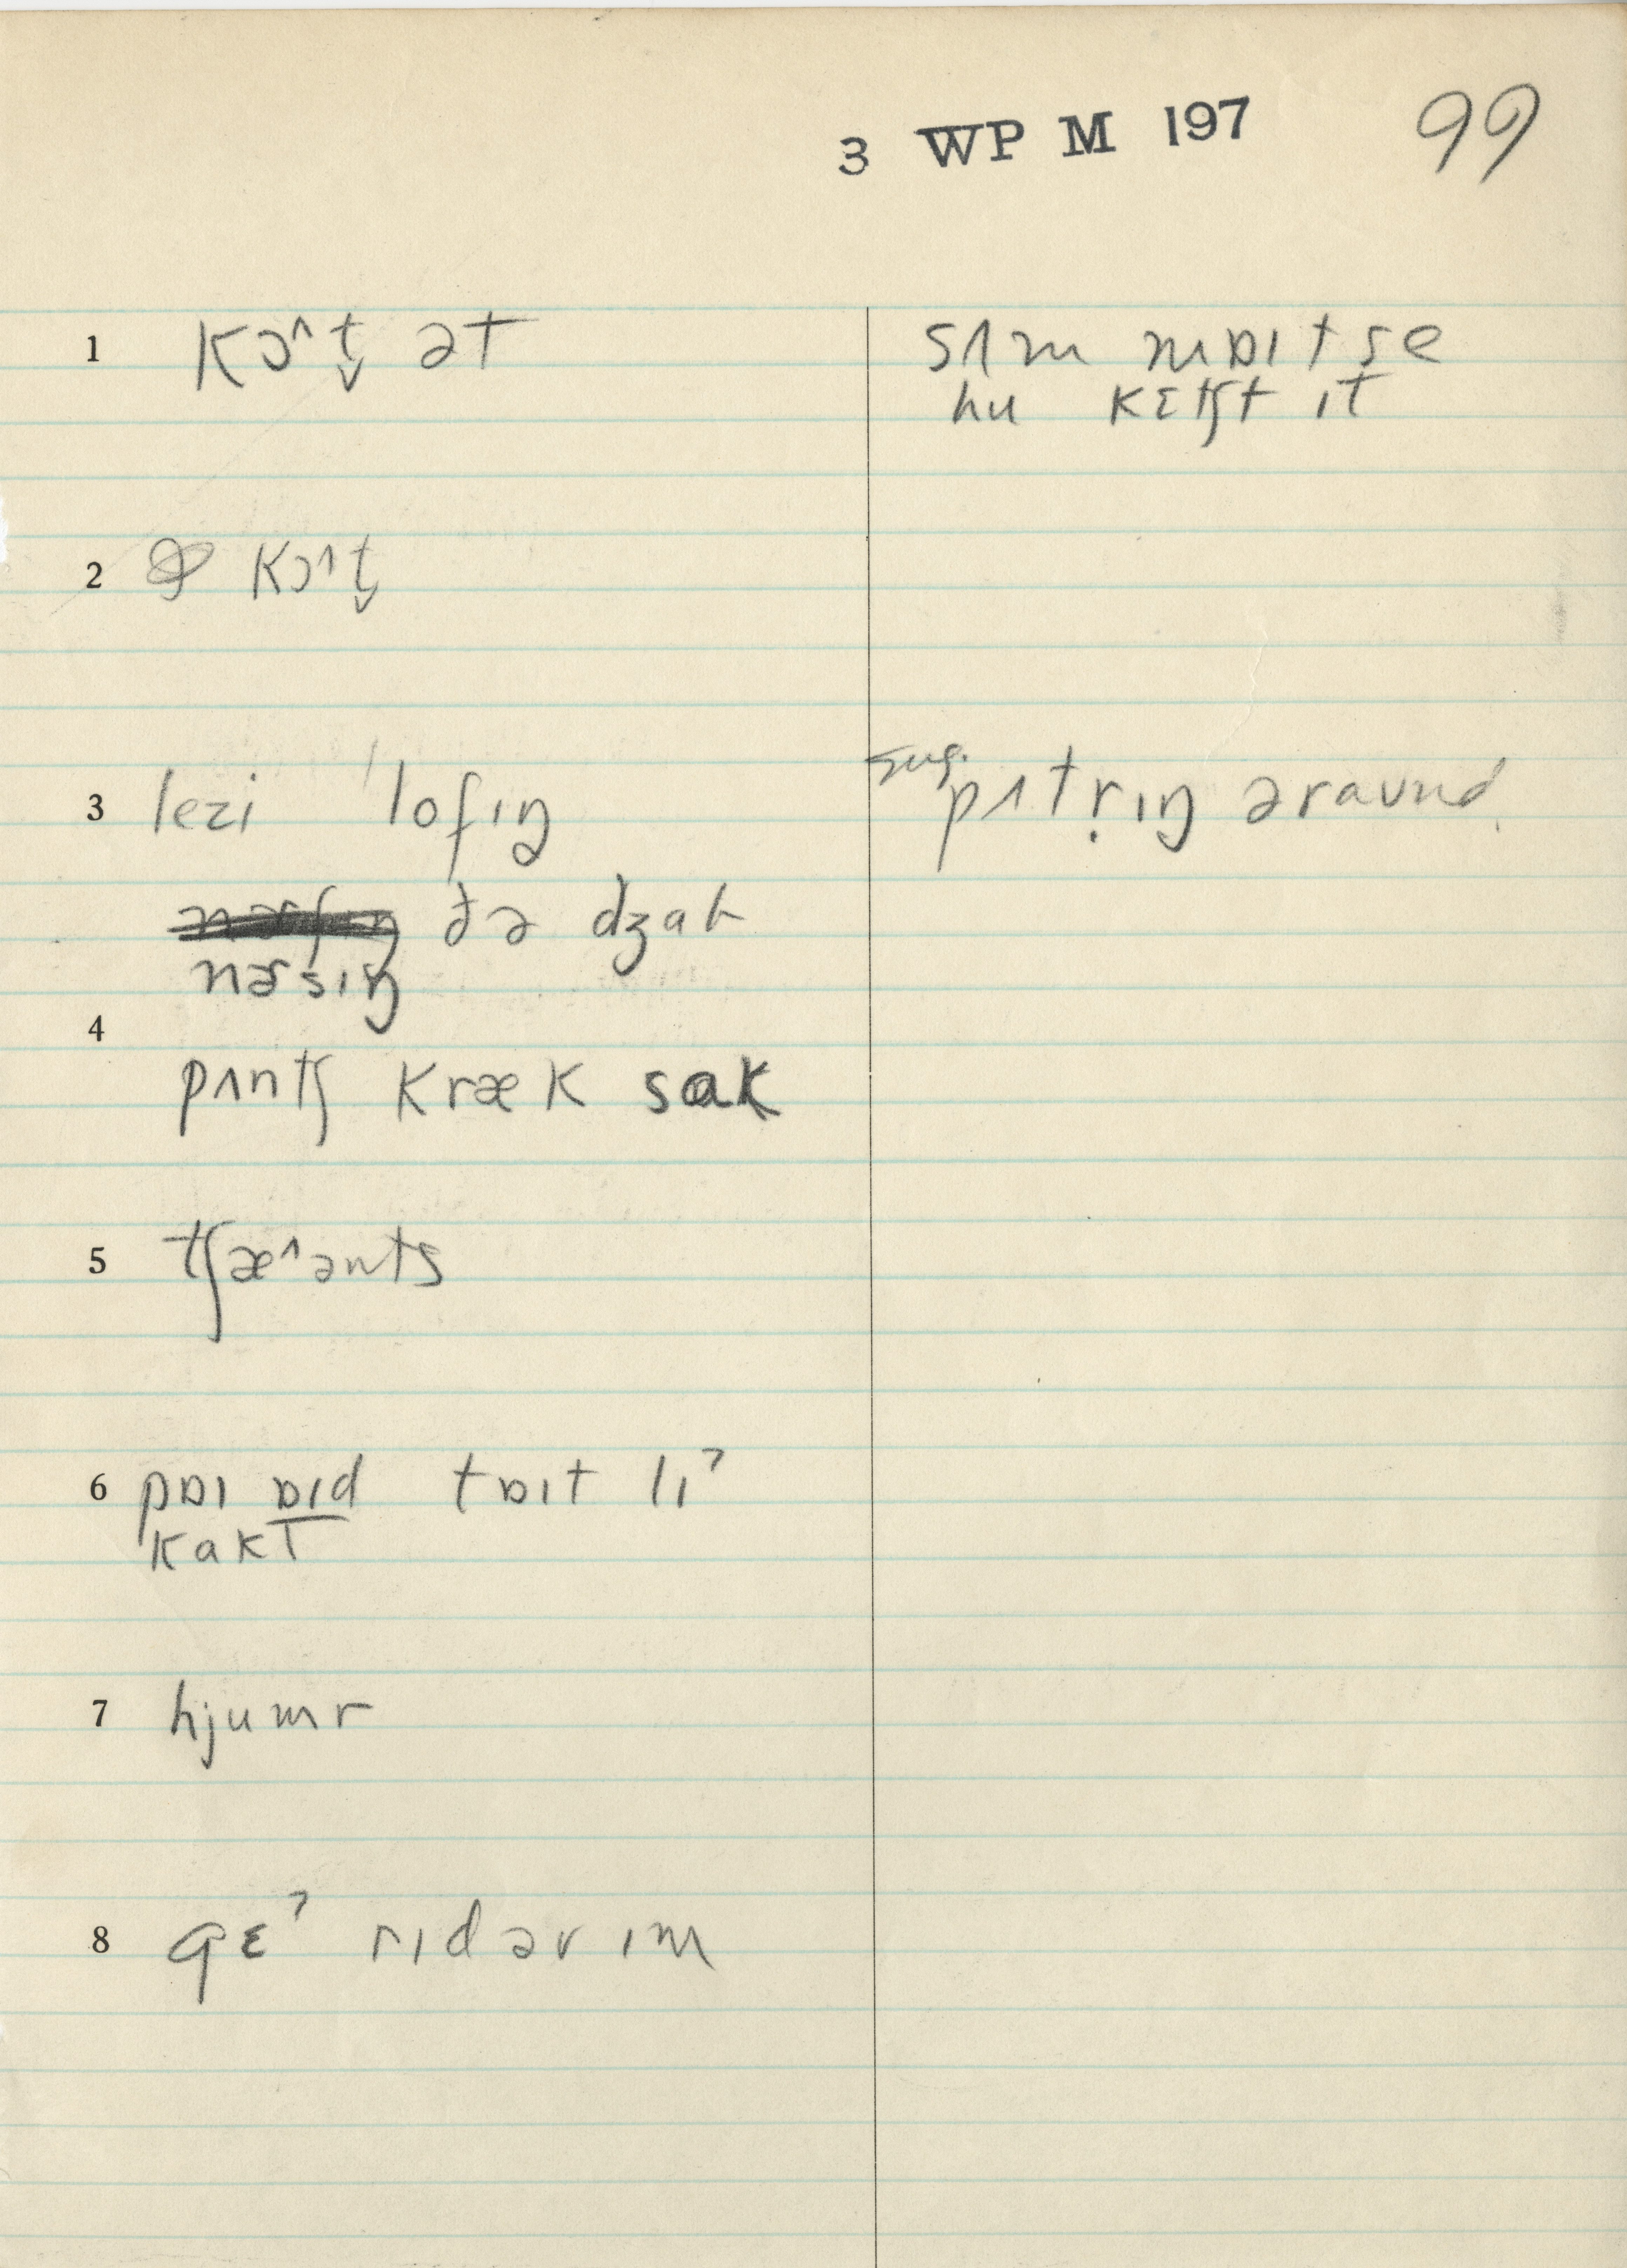 3 WP M 197 99
1 kɔ^t̬ ət
sʌm mɒɪt se
hu kɛtʃt ɪt
2 kɔ^t̬
3 lezi 'lofɪŋ
sug. pʌtr̩ɪŋ əraʊnd
ðə dʒab
nɚsɪŋ
4
pʌntʃ kræk sak
5 tʃæ^ənts
6 pɒɪ ɒɪd tɒɪt lɪˀ
kakt
7 hjumr
8 gɛˀ rɪd əv ɪm